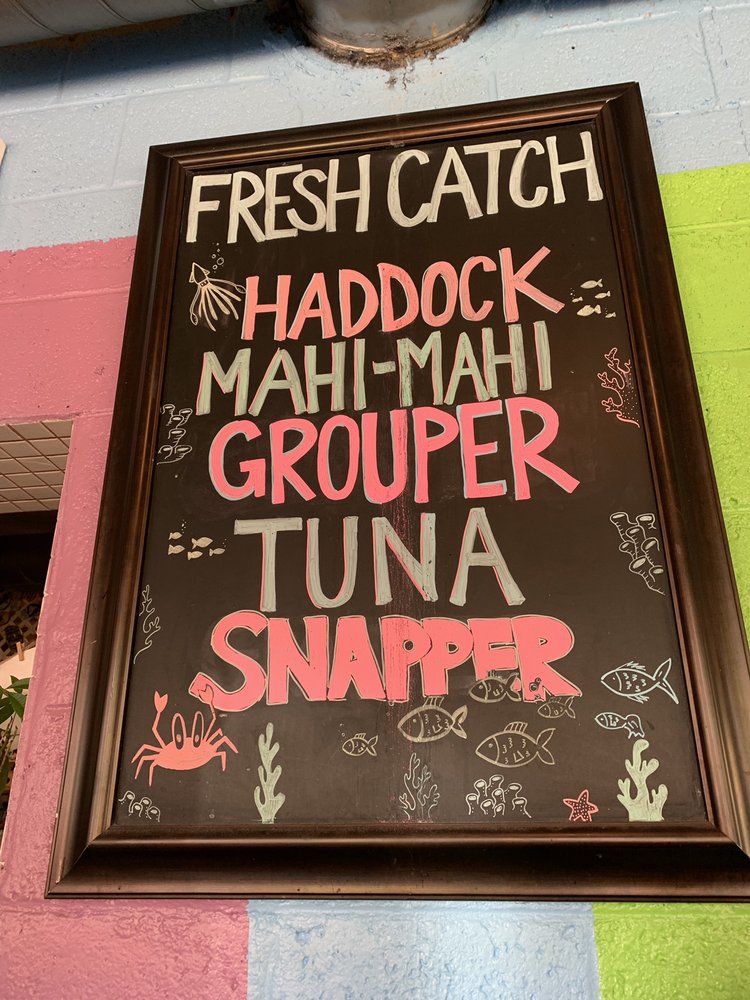 FRESH CATCH
HADDOCK
MAHI-MAHI
GROUPER
TUNA
SNAPPER